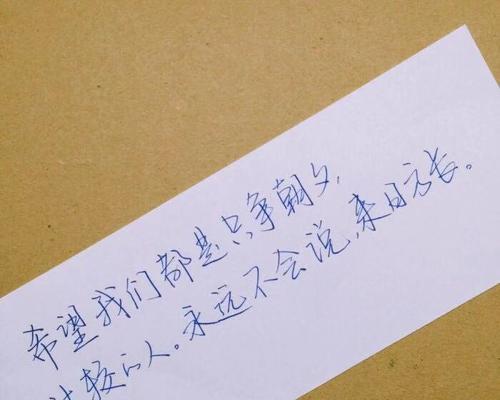 希望我们都是只争朝夕,
计较的人。永远不会说,来日方长。